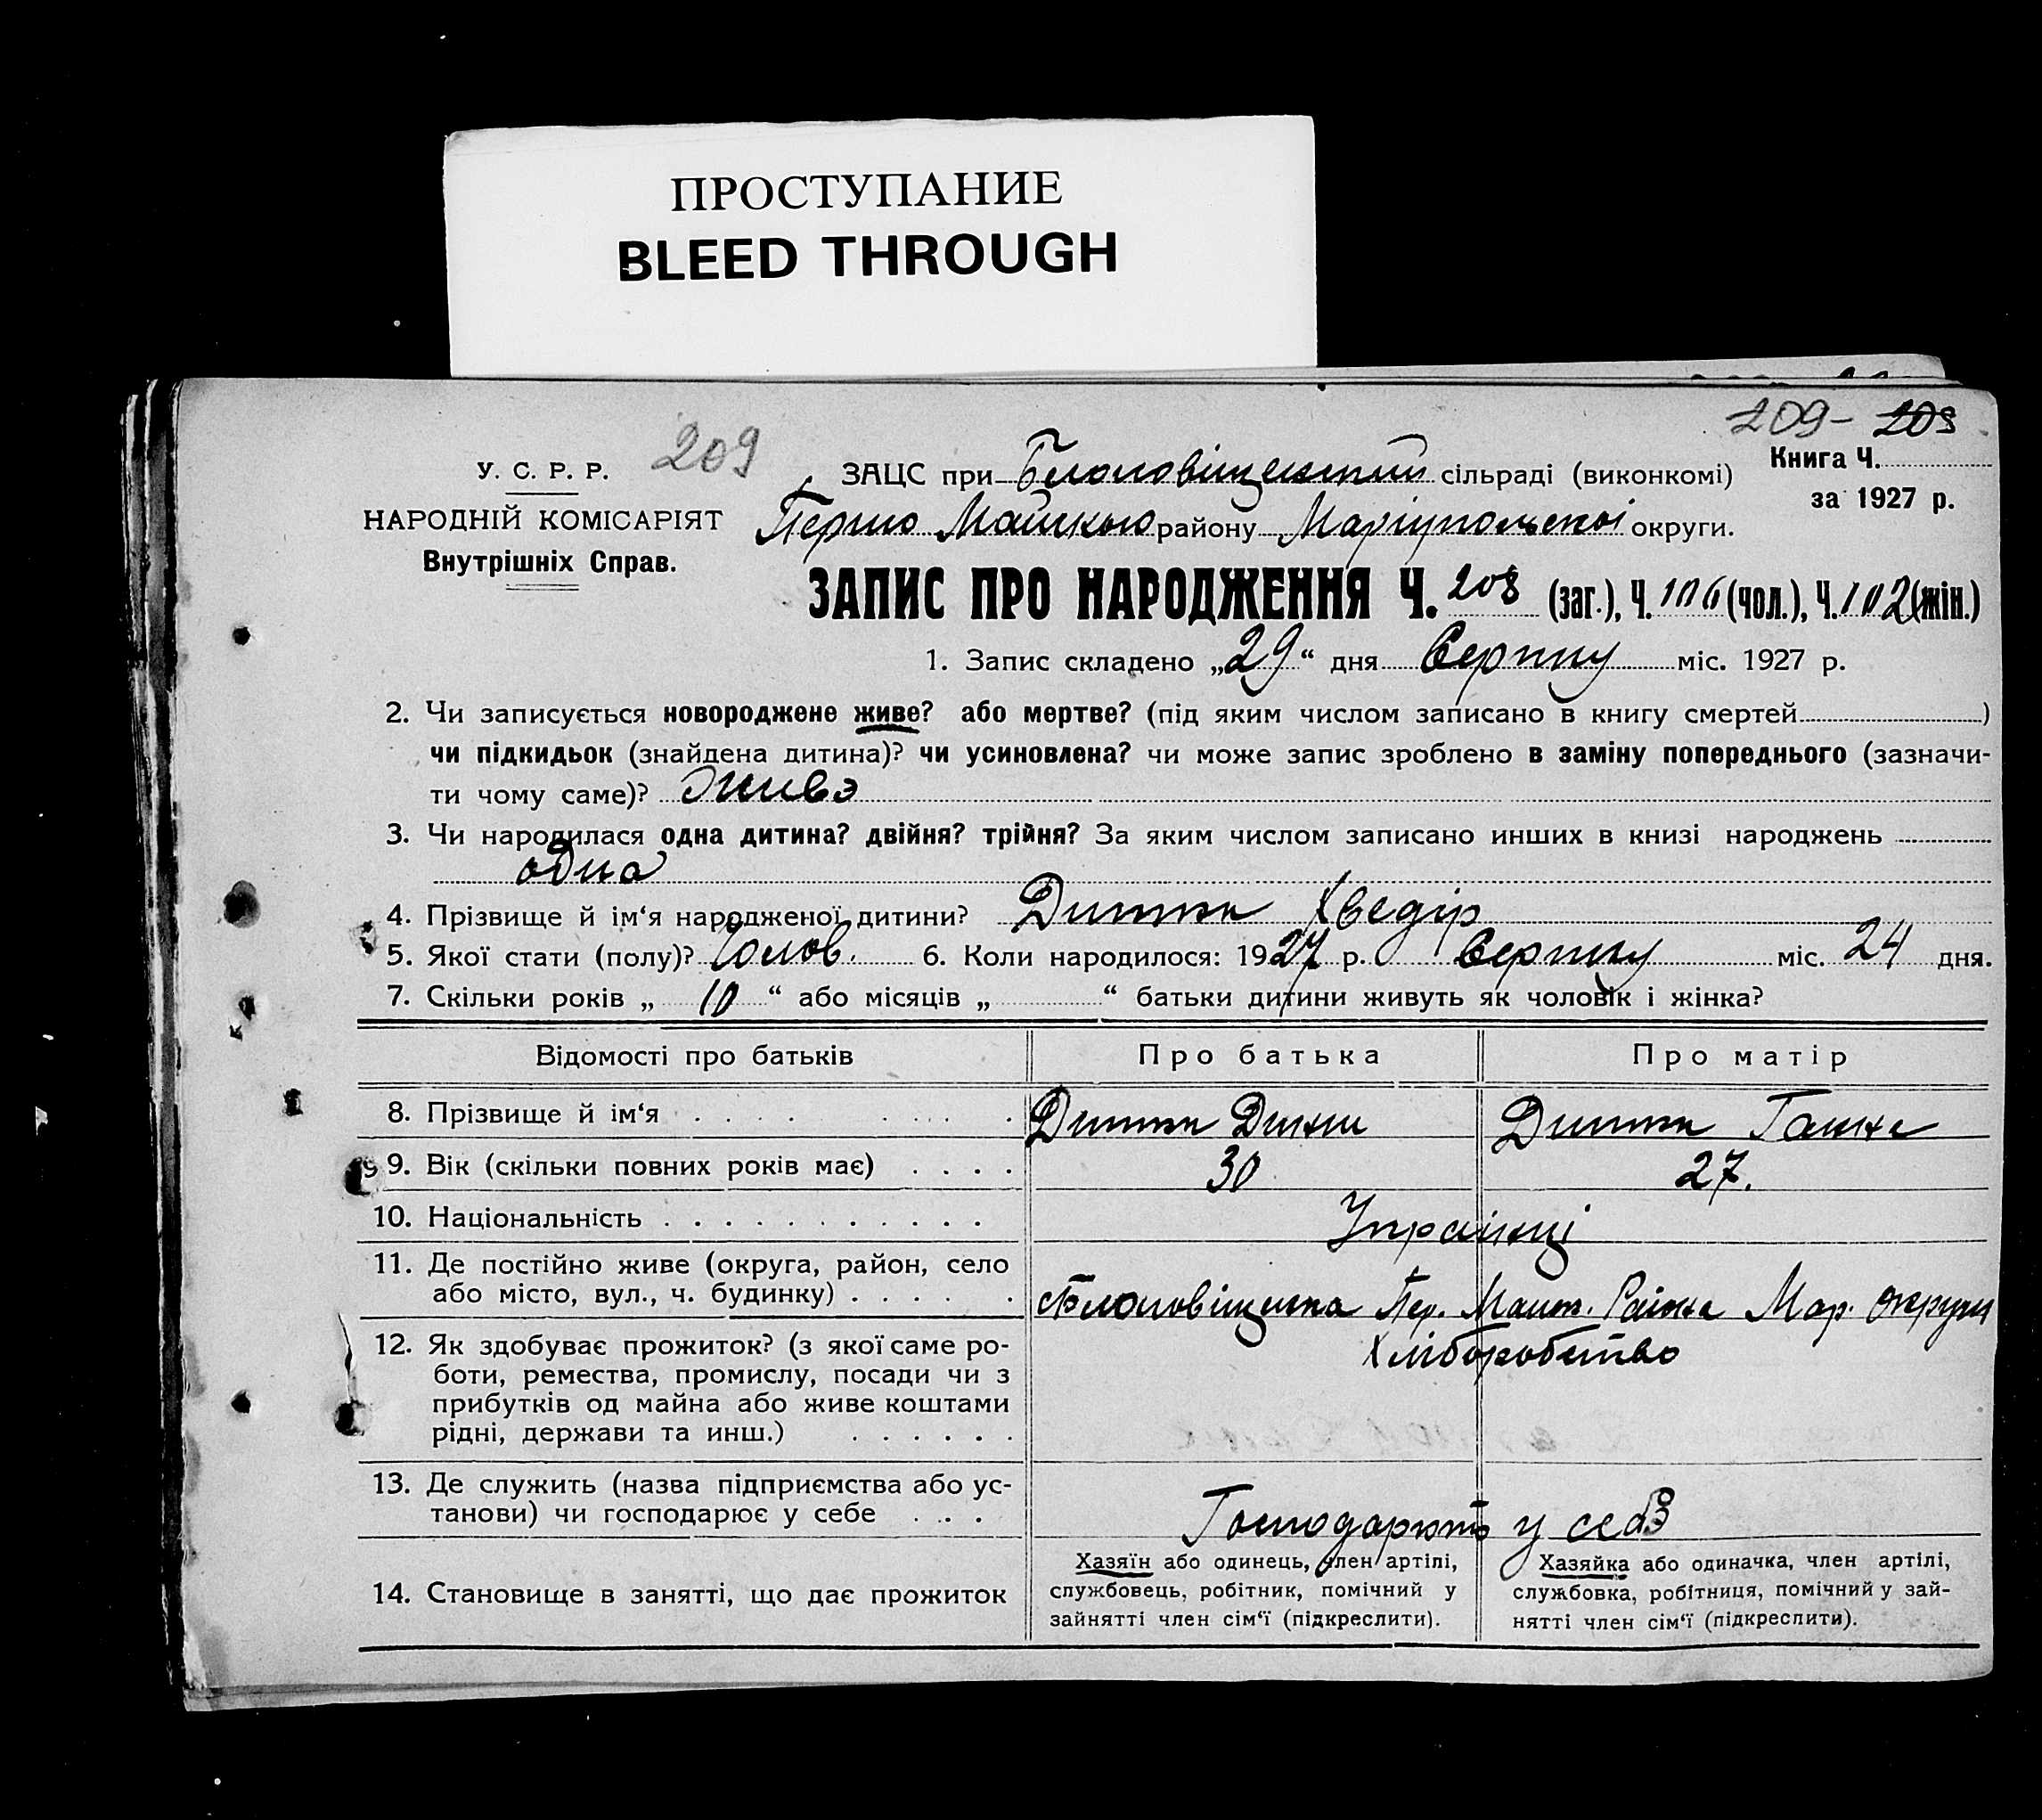 ПРОСТУПАНИЕ
BLEED THROUGH
209- 203
209
У. С. Р. Р.
НАРОДНІЙ КОМІСАРІЯТ
Внутрішніх Справ.
ЗАЦС при сільраді (виконкомі)
Книга Ч.
за 1927 р.
Першо Майського району Маріупольської округи.
ЗАПИС ПРО НАРОДЖЕННЯ Ч. 208 (заг.), Ч. 106 (чол.), Ч. 102 (жін.)
1. Запис складено „29“ дня Серпну міс. 1927 р.
2. Чи записується новороджене живе? або мертве? (під яким числом записано в книгу смертей )
чи підкидьок (знайдена дитина)? чи усиновлена? чи може запис зроблено в заміну попереднього (зазначи-
ти чому саме)? Живэ
3. Чи народилася одна дитина? двійня? трійня? За яким числом записано инших в книзі народжень
одна
4. Прізвище й ім‘я народженої дитини? Хведір
5. Якої стати (полу)? Чолов. 6. Коли народилося: 1927 р. Серпну міс. 24 дня.
7. Скільки років „ 10 “ або місяців „ “ батьки дитини живуть як чоловік і жінка?
Відомості про батьків Про батька Про матір
8. Прізвище й ім‘я Ганна
9. Вік (скільки повних років має) 30 27.
10. Національність Українці
11. Де постійно живе (округа, район, село
або місто, вул., ч. будинку) Пер. Майск. Района Мар. округи
12. Як здобуває прожиток? (з якої саме ро-
боти, ремества, промислу, посади чи з
прибутків од майна або живе коштами
рідні, держави та инш.)
Хліборобство
13. Де служить (назва підприємства або ус-
танови) чи господарює у себе
Господарють у себэ
14. Становище в занятті, що дає прожиток
Хазяїн або одинець, член артілі,
службовець, робітник, помічний у
зайнятті член сім‘ї (підкреслити).
Хазяйка або одиначка, член артілі,
службовка, робітниця, помічний у зай-
нятті член сім‘ї (підкреслити).